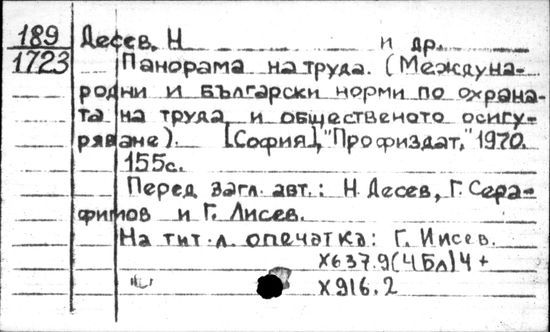 189 Десев, Н и др.
1723 Панорама на труда. (Междуна-
родни и български норми по охрана-
та на труда и общественото осигу-
ряване). [София], "Профиздат," 1970.
155с.
Перед загл. авт.: Н. Десев, Г. Сера-
фимов и Г. Лисев.
На тит. л. опечатка: Г. Иисев.
X637.9(4Бл)4 +
X916.2